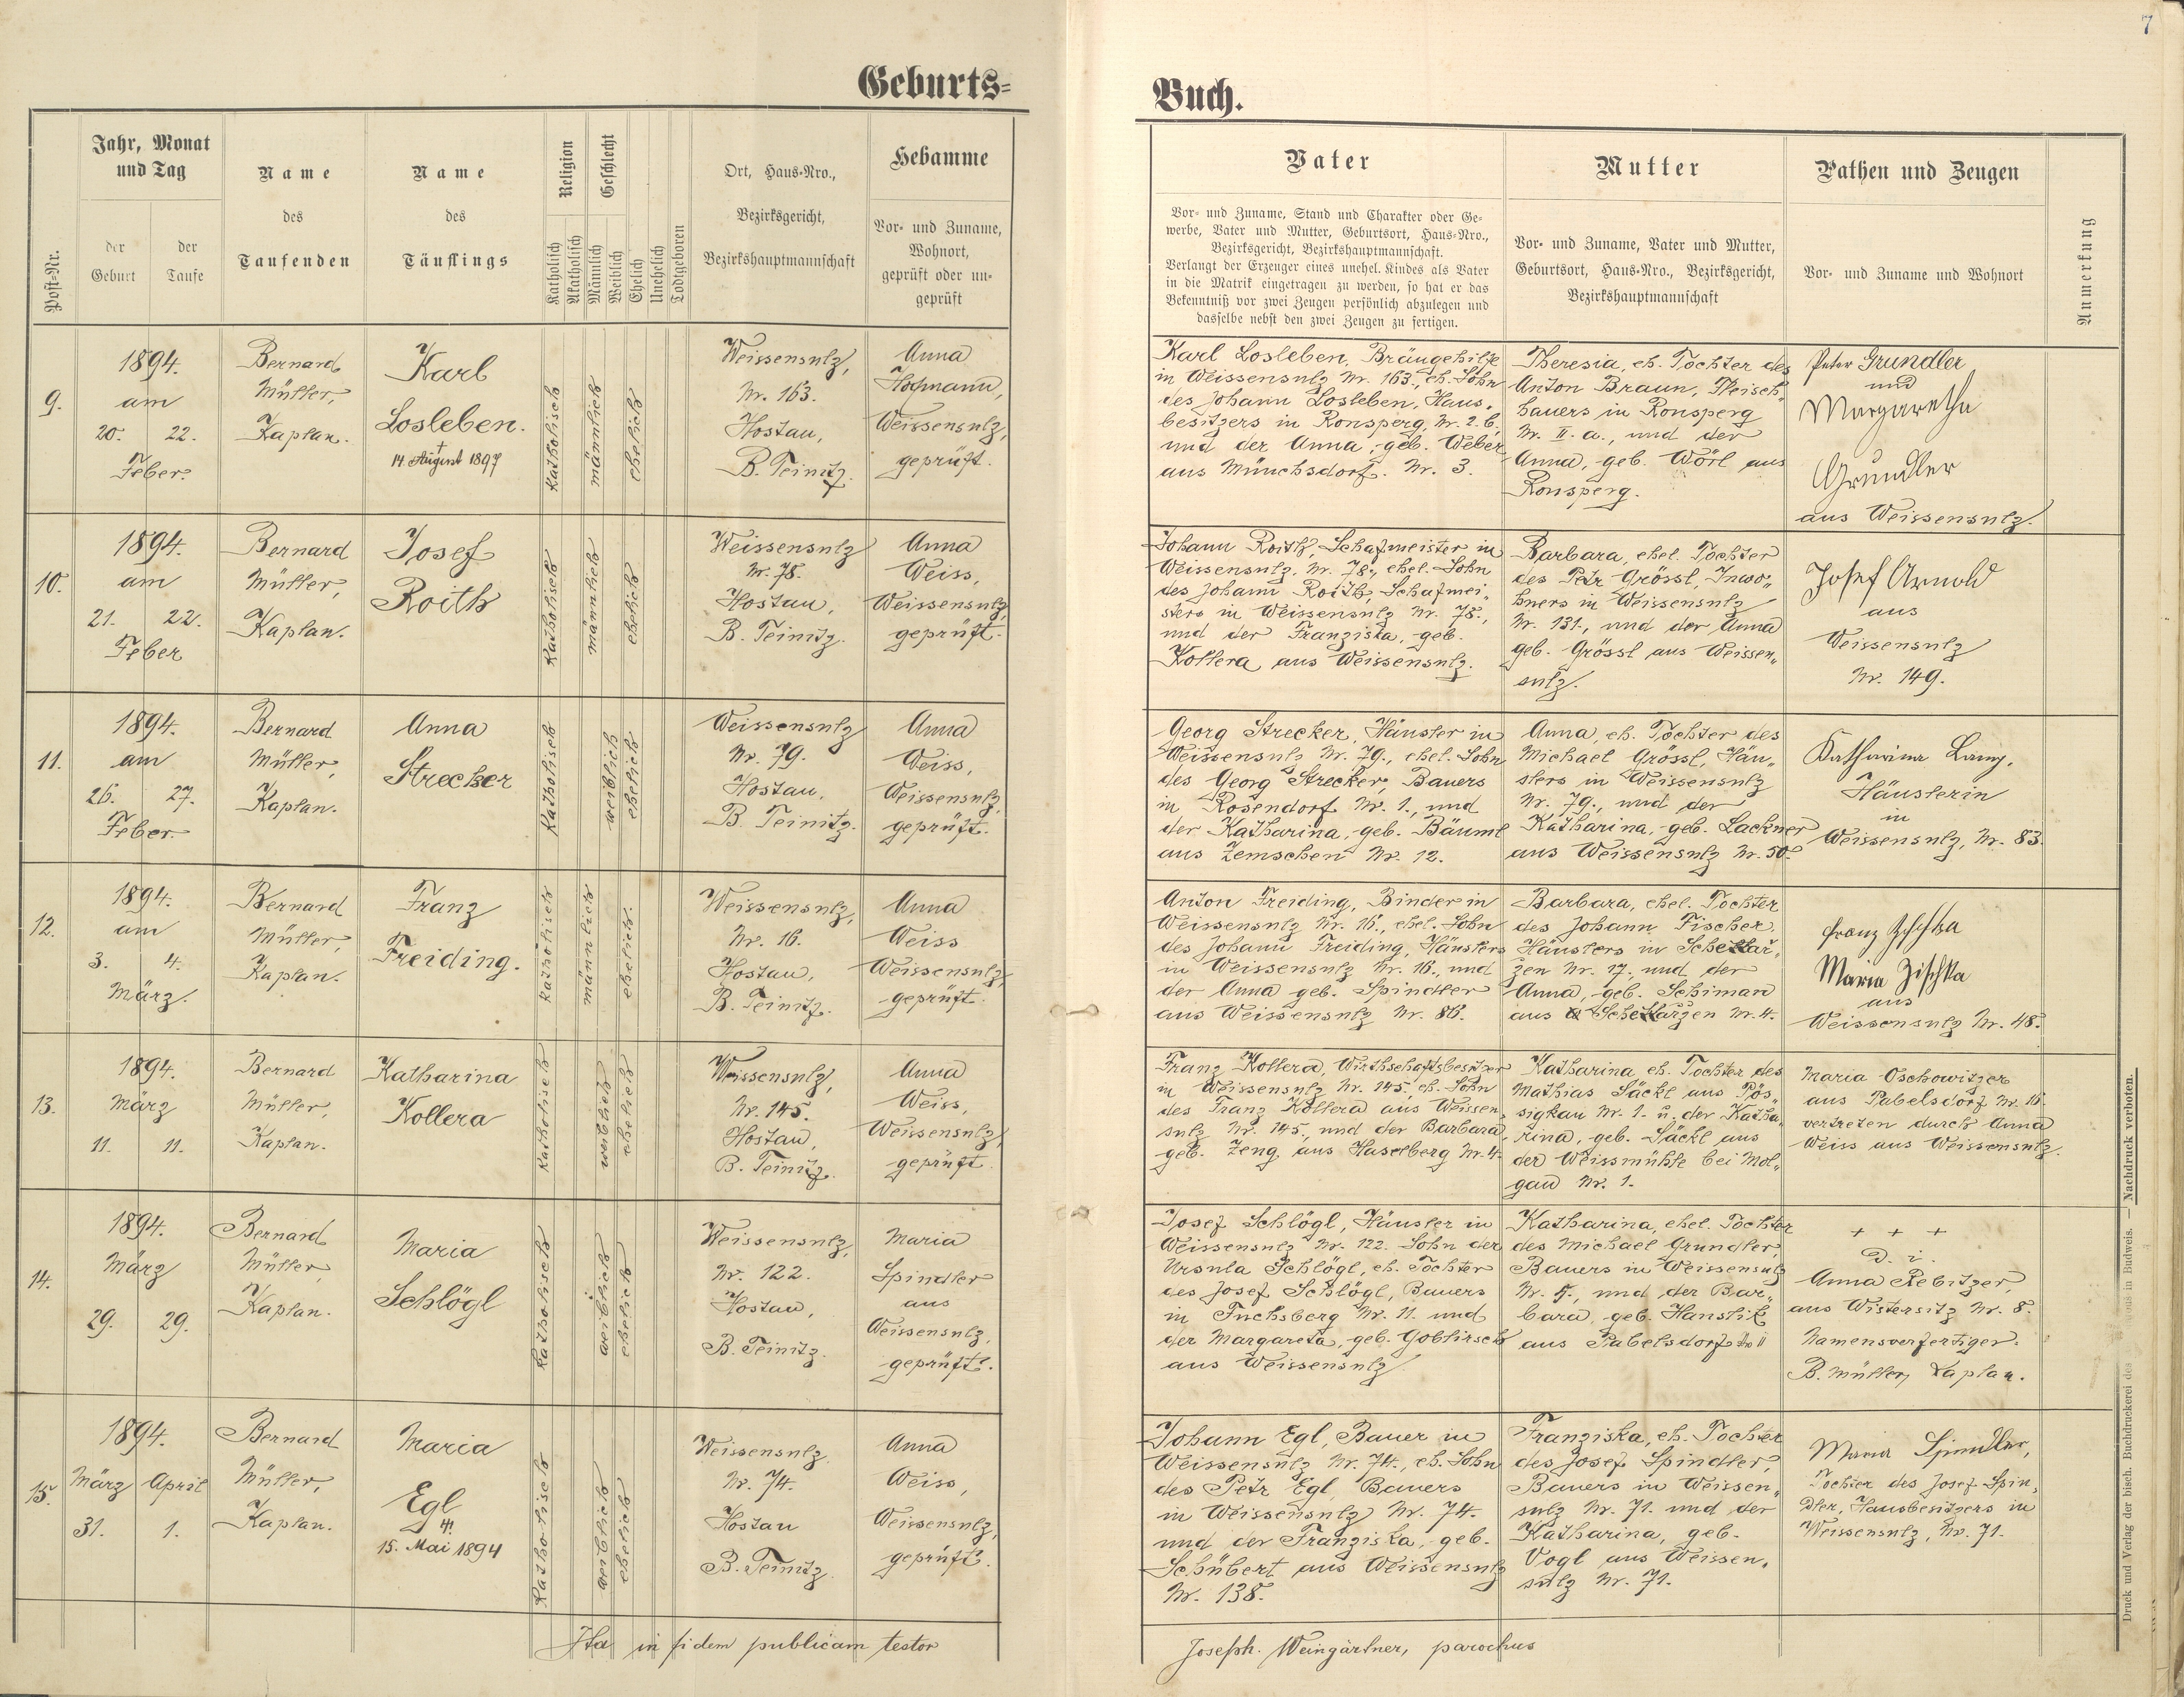 7
Geburts=
Buch.
Post-Nr.
Jahr, Monat
und Tag
der
Geburt
der
Taufe
Name
des
Taufenden
Name
des
Täuflings
Religion
Katholisch
Akatholisch
Geschlecht
Männlich
Weiblich
Ehelich
Unehelich
Todtgeboren
Ort, Haus-Nro.,
Bezirksgericht,
Bezirkshauptmannschaft
Hebamme
Vor- und Zuname,
Wohnort,
geprüft oder un-
geprüft
Vater
Vor- und Zuname, Stand und Charakter oder Ge-
werbe, Vater und Mutter, Geburtsort, Haus-Nro.,
Bezirksgericht, Bezirkshauptmannschaft.
Verlangt der Erzeuger eines unehel. Kindes als Vater
in die Matrik eingetragen zu werden, so hat er das
Bekenntniß vor zwei Zeugen persönlich abzulegen und
dasselbe nebst den zwei Zeugen zu fertigen.
Mutter
Vor- und Zuname, Vater und Mutter,
Geburtsort, Haus-Nro., Bezirksgericht,
Bezirkshauptmannschaft
Pathen und Zeugen
Vor- und Zuname und Wohnort
Anmerkung
9.
1894.
am
20. 22.
Feber.
Bernard
Müller,
Kaplan.
Karl
Losleben.
†
14. August 1897
katholisch
männlich
ehelich
Weissensulz,
Nr. 163.
Hostau,
B. Teinitz.
Anna
Hofmann,
Weissensulz,
geprüft.
Karl Losleben, Bräugehilfe
in Weissensulz Nr. 163., eh. Sohn
des Johann Losleben, Haus-
besitzers in Ronsperg, Nr. 2. b.
und der Anna, geb. Weber
aus Münchsdorf. Nr. 3.
Theresia, eh. Tochter des
Anton Braun, Fleisch-
hauers in Ronsperg
Nr. II. a., und der
Anna, geb. Wörl aus
Ronsperg.
Peter Grundler
und
Margaretha
Grundler
aus Weissensulz.
10.
1894.
am
21. 22.
Feber
Bernard
Müller,
Kaplan.
Josef
Roith
katholisch
männlich
ehelich
Weissensulz
Nr. 78.
Hostau,
B. Teinitz.
Anna
Weiss,
Weissensulz,
geprüft.
Johann Roith, Schafmeister in
Weissensulz, Nr. 78., ehel. Sohn
des Johann Roith, Schafmei-
sters in Weissensulz Nr. 78.,
und der Franziska, geb.
Kollera aus Weissensulz.
Barbara, ehel. Tochter
des Petr Grössl, Inwoh-
ners in Weissensulz
Nr. 131., und der Anna
geb. Grössl aus Weissen-
sulz.
Josef Arnold
aus
Weissensulz
Nr. 149.
11.
1894.
am
26. 27.
Feber
Bernard
Müller,
Kaplan.
Anna
Strecker
katholisch
weiblich
ehelich
Weissensulz
Nr. 79.
Hostau,
B. Teinitz.
Anna
Weiss,
Weissensulz,
geprüft.
Georg Strecker, Häusler in
Weissensulz Nr. 79., ehel. Sohn
des Georg Strecker, Bauers
in Rosendorf Nr. 1., und
der Katharina, geb. Bäuml
aus Zemschen Nr. 12.
Anna, eh. Tochter des
Michael Grössl, Häu-
slers in Weissensulz
Nr. 79., und der
Katharina, geb. Lackner
aus Weissensulz Nr. 50.
Katharina Lang,
Häuslerin
in
Weissensulz, Nr. 83.
12.
1894.
am
3. 4.
März.
Bernard
Müller,
Kaplan.
Franz
Freiding.
katholisch
männlich
ehelich.
Weissensulz,
Nr. 16.
Hostau,
B. Teinitz.
Anna
Weiss
Weissensulz,
geprüft.
Anton Freiding, Binder in
Weissensulz Nr. 16., ehel. Sohn
des Johann Freiding, Häuslers
in Weissensulz Nr. 16., und
der Anna geb. Spindler
aus Weissensulz Nr. 86.
Barbara, ehel. Tochter
des Johann Fischer
Häuslers in Schekar-
zen Nr. 17., und der
Anna, geb. Schiman
aus Schekarzen Nr. 4.
Franz Zischka
Maria Zischka
aus
Weissensulz Nr. 48.
13.
1894.
März
11. 11.
Bernard
Müller,
Kaplan.
Katharina
Kollera
katholisch
weiblich
ehelich
Weissensulz,
Nr. 145.
Hostau,
B. Teinitz.
Anna
Weiss,
Weissensulz,
geprüft.
Franz Kollera, Wirthschaftsbesitzer
in Weissensulz Nr. 145, eh. Sohn
des Franz Kollera aus Weissen-
sulz Nr. 145, und der Barbara,
geb. Zeng aus Haselberg Nr. 4.
Katharina eh. Tochter des
Mathias Säckl aus Pös-
sigkau Nr. 1. u. der Katha-
rina, geb. Säckl aus
der Weissmühle bei Mol-
gau Nr. 1.
Maria Oschowitzer
aus Pabelsdorf Nr. 16
vertreten durch Anna
Weiss aus Weissensulz.
14.
1894.
März
29. 29.
Bernard
Müller,
Kaplan.
Maria
Schlögl
katholisch
weiblich
ehelich
Weissensulz,
Nr. 122.
Hostau,
B. Teinitz.
Maria
Spindler
aus
Weissensulz,
geprüft.
Josef Schlögl, Häusler in
Weissensulz Nr. 122. Sohn der
Ursula Schlögl, eh. Tochter
des Josef Schlögl, Bauers
in Fuchsberg Nr. 11. und
der Margareta, geb. Goblirsch
aus Weissensulz
Katharina, ehel. Tochter
des Michael Grundler,
Bauers in Weissensulz
Nr. 5., und der Bar-
bara, geb. Hanslik
aus Pabelsdorf No 11
+ + +
D. i.
Anna Rebitzer,
aus Wistersitz Nr. 8.
Namensverfertiger:
B. Müller, Kaplan.
15.
1894.
März April
31. 1.
Bernard
Müller,
Kaplan.
Maria
Egl
†
15. Mai 1894
katholisch
weiblich
ehelich
Weissensulz
Nr. 74.
Hostau
B. Teinitz.
Anna
Weiss,
Weissensulz,
geprüft.
Johann Egl, Bauer in
Weissensulz Nr. 74., eh. Sohn
des Petr Egl, Bauers
in Weissensulz Nr. 74.
und der Franziska, geb.
Schübert aus Weissensulz
Nr. 138.
Franziska, eh. Tochter
des Josef Spindler,
Bauers in Weissen-
sulz Nr. 71. und der
Katharina, geb.
Vogl aus Weissen-
sulz Nr. 71.
Maria Spindler,
Tochter des Josef Spin-
dler, Hausbesitzers in
Weissensulz, Nr. 71.
Ita in fidem publicam testor
Joseph. Weingärtner, parochus
Druck und Verlag der bisch. Buchdruckerei in Budweis. — Nachdruck verboten.